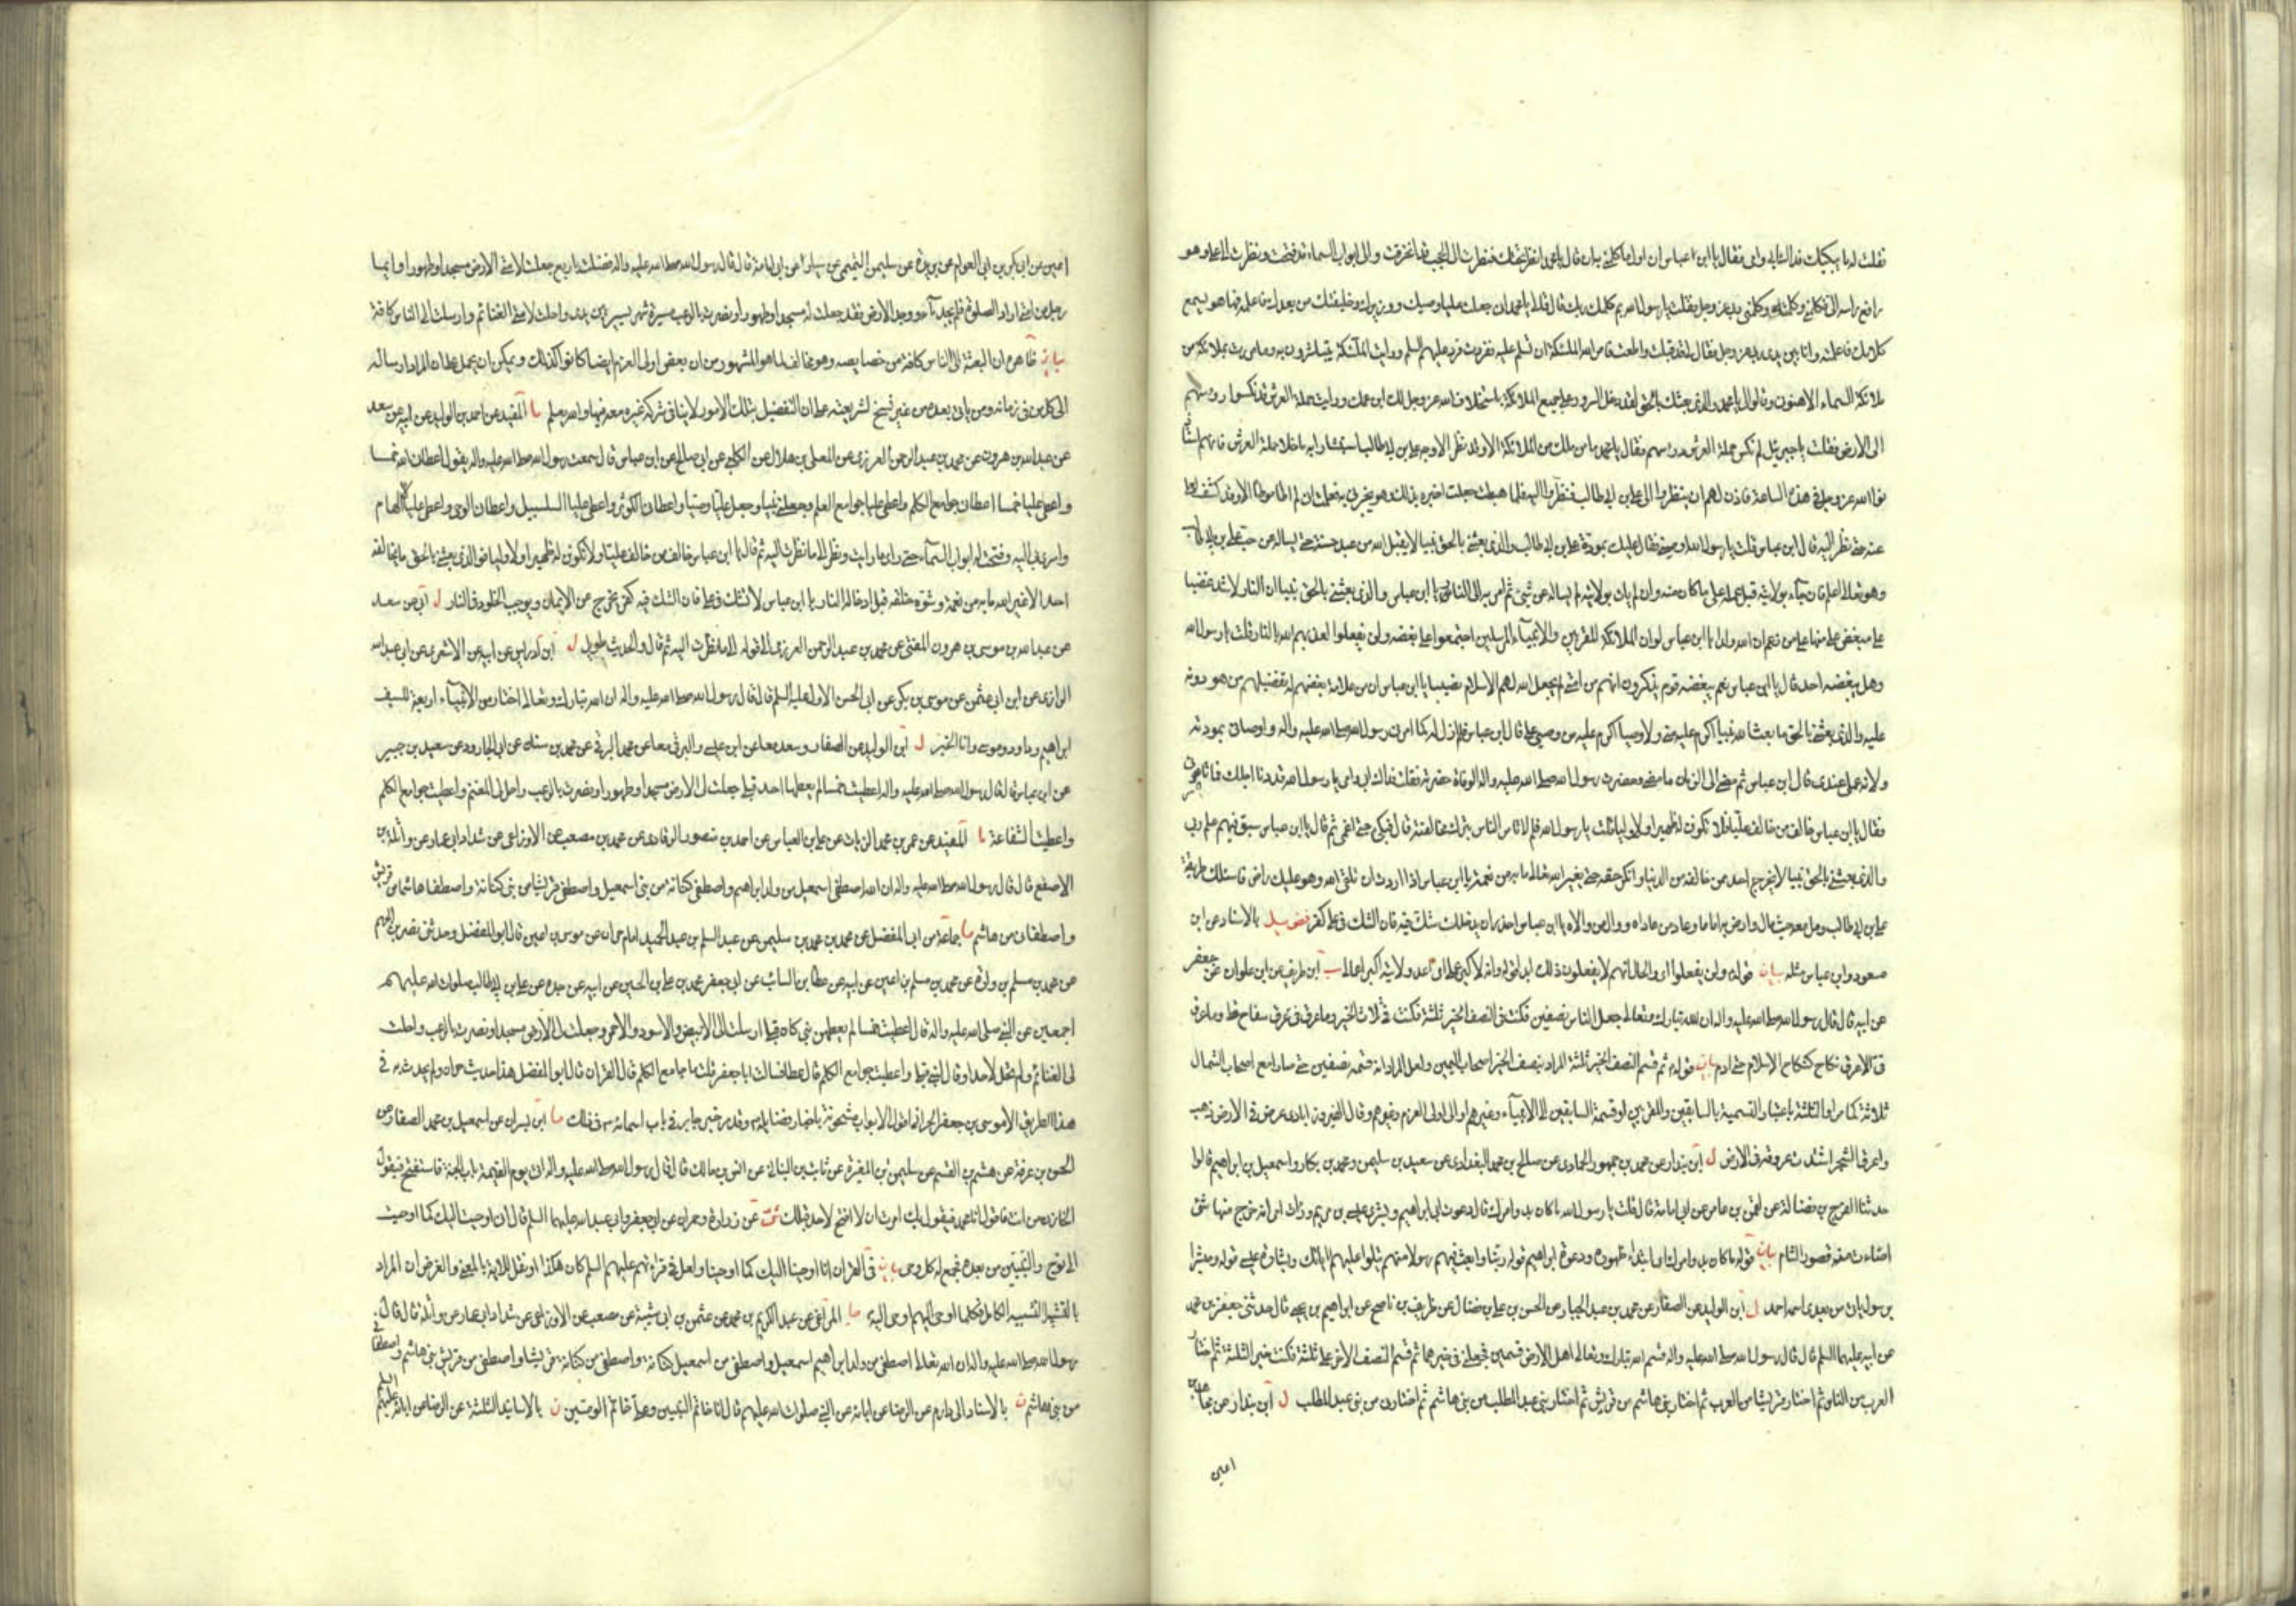 فقلت له ما يبكيك فداك ابي وامي فقال يا ابن عباس ان اول ما كلمني به ان قال يا محمد انظر تحتك فنظرت الى الحجب قد انخرقت والى ابواب السماء قد فتحت ونظرت الى علي وهو
رافع راسه الي فكلمني وكلمته وكلمني ربي عز وجل فقلت يا رسول الله بم كلمك ربك قال قال لي يا محمد اني جعلت عليا وصيك ووزيرك وخليفتك من بعدك فاعلمه فها هو يسمع
كلامك فاعلمته وانا بين يدي ربي عز وجل فقال لي قد قبلت واطعت فامر الله الملئكة ان تسلم عليه ففعلت فرد عليهم السلم ورايت الملئكة يتباشرون به وما مررت بملائكة من
ملائكة السماء الا هنوني وقالوا لي يا محمد والذي بعثك بالحق لقد دخل السرور على جميع الملائكة باستخلاف الله عز وجل لك ابن عمك ورايت حملة العرش قد نكسوا رؤسهم
الى الارض فقلت يا جبرئيل لم نكس حملة العرش رؤسهم فقال يا محمد ما من ملك من الملائكة الا وقد نظر الى وجه علي بن ابي طالب استبشارا به ما خلا حملة العرش فانهم استاذ
نوا الله عز وجل في هذه الساعة فاذن لهم ان ينظروا الى علي بن ابي طالب فنظروا اليه فلما هبطت جعلت اخبره بذلك وهو يخبرني به فعلمت اني لم اطا موطئا الا وقد كشف لعلي
عنه حتى نظر اليه قال ابن عباس قلت يا رسول الله اوصني فقال عليك بمودة علي بن ابي طالب والذي بعثني بالحق نبيا لا يقبل الله من عبد حسنة حتى يساله عن حب علي بن ابي طالب
وهو تعالى اعلم فان جاء بولايته قبل عمله على ما كان منه وان لم يات بولايته لم يساله عن شئ ثم امر به الى النار يا ابن عباس والذي بعثني بالحق نبيا ان النار لاشد غضبا
على مبغض علي منها على من زعم ان لله ولدا يا ابن عباس لو ان الملائكة المقربين والانبياء المرسلين اجتمعوا على بغضه ولن يفعلوا لعذبهم الله بالنار قلت يا رسول الله
وهل يبغضه احد قال يا ابن عباس نعم يبغضه قوم يذكرون انهم من امتي لم يجعل الله لهم في الاسلام نصيبا يا ابن عباس ان من علامة بغضهم له تفضيلهم من هو دونه
عليه والذي بعثني بالحق ما بعث الله نبيا اكرم عليه مني ولا وصيا اكرم عليه من وصيي علي قال ابن عباس فلم ازل له كما امرني رسول الله صلى الله عليه واله واوصاني بمودته
وانه لاكبر عملي عندي قال ابن عباس ثم مضى من الزمان ما مضى وحضرت رسول الله صلى الله عليه واله الوفاة حضرته فقلت فداك ابي وامي يا رسول الله قد دنا اجلك فما تامرني
فقال يا ابن عباس خالف من خالف عليا فلا تكونن لهم ظهيرا ولا وليا قلت يا رسول الله فلم لا تامر الناس بترك مخالفته قال فبكى حتى اغمي ثم قال يا ابن عباس سبق فيهم علم ربي
والذي بعثني بالحق نبيا لا يخرج احد ممن خالفه من الدنيا وانكر حقه حتى يغير الله تعالى ما به من نعمة يا ابن عباس اذا اردت ان تلقى الله وهو عليك راض فاسلك طريقة
علي بن ابي طالب ومل معه حيث مال وارض به اماما وعاد من عاداه ووال من والاه يا ابن عباس احذر ان يدخلك شك فيه فان الشك في علي كفر فض يل بالاسناد عن ابن
مسعود وابن عباس مثله بيان قوله ولن يفعلوا اي والحال انهم لا يفعلون ذلك ابدا قوله وانه لاكبر عملي اي اعد ولايته اكبر اعمالي ب ابن طريف عن ابن علوان عن جعفر
عن ابيه قال قال رسول الله صلى الله عليه واله ان الله تبارك وتعالى جعل الناس نصفين فكنت في النصف الخير ثلثة فكنت في ثلاث الخير وما عرق في عرق سفاح قط وما عرق
في الا عرق نكاح كنكاح الاسلام حتى ادم بيان قوله ثم قسم النصف الخير ثلثة المراد بنصف الخير اصحاب اليمين ولعل المراد انه قسمه نصفين حتى صار مع اصحاب الشمال
ثلاثة كما مر او الثلثة باعتبار القسمية بالسابقين والمقربين او قسمة السابقين الى الانبياء وغيرهم او الى اولي العزم وغيرهم وقال الفيروزابادي عرض في الارض ذهب
واعرق الشجر اشتدت عروقه في الارض ل ابن بندار عن محمد بن جمهور الحمادي عن صالح بن محمد البغدادي عن سعيد بن سليمن ومحمد بن بكار واسمعيل بن ابراهيم قالوا
حدثنا الفرج بن فضالة عن لقمن بن عامر عن ابي امامة قال قلت يا رسول الله ما كان بدء امرك قال دعوة ابي ابراهيم وبشرى عيسى بن مريم ورات امي انه خرج منها شئ
اضاءت منه قصور الشام بيان قوله ما كان بدء امرك اي ابتداء ظهوره ودعوة ابراهيم قوله ربنا وابعث فيهم رسولا منهم يتلوا عليهم اياتك وبشارة عيسى قوله ومبشرا
برسول ياتي من بعدي اسمه احمد ل ابن الوليد عن الصفار عن محمد بن عبد الجبار عن الحسن بن علي بن فضال عن ظريف بن ناصح عن ابراهيم بن يحيى قال حدثني جعفر بن محمد
عن ابيه عليهما السلم قال قال رسول الله صلى الله عليه واله قسم الله تبارك وتعالى اهل الارض قسمين فجعلني في خيرهما ثم قسم النصف الاخر على ثلثة فكنت خير الثلثة ثم اختار
العرب من الناس ثم اختار قريشا من العرب ثم اختار بني هاشم من قريش ثم اختار بني عبد المطلب من بني هاشم ثم اختارني من بني عبد المطلب ل ابن بندار عن مجاهد بن
اعين
اعين عن ابي بكر بن ابي العوام عن يزيد عن سليمن التيمي عن سيار عن ابي امامة قال قال رسول الله صلى الله عليه واله فضلت باربع جعلت لامتي الارض مسجدا وطهورا وايما
رجل من امتي اراد الصلوة فلم يجد ماء ووجد الارض فقد جعلت له مسجدا وطهورا ونصرت بالرعب مسيرة شهر يسير بين يدي واحلت لامتي الغنائم وارسلت الى الناس كافة
بيان ظاهره ان البعثة الى الناس كافة من خصايصه وهو مخالف لما هو المشهور من ان بعض اولي العزم ايضا كانوا كذلك ويمكن ان يحمل على ان المراد ارساله
الى كل من في زمانه ومن ياتي بعده من غير نسخ لشريعته على ان التفضيل بتلك الامور لا ينافي شركة غيره معه فيها والله يعلم ما المفيد عن احمد بن الوليد عن ابيه عن سعد
عن عبد الله بن هرون عن محمد بن عبد الرحمن العرزمي عن المعلى بن هلال عن الكلبي عن ابي صالح عن ابن عباس قال سمعت رسول الله صلى الله عليه واله يقول اعطاني الله خمسا
واعطى عليا خمسا اعطاني جوامع الكلم واعطى عليا جوامع العلم وجعلني نبيا وجعل عليا وصيا واعطاني الكوثر واعطى عليا السلسبيل واعطاني الوحي واعطى عليا الالهام
واسرى بي اليه وفتحت له ابواب السماء حتى راى ما رايت ونظر الى ما نظرت اليه ثم قال يا ابن عباس خالف من خالف عليا ولا تكونن له ظهيرا ولا وليا فوالذي بعثني بالحق ما يخالفه
احد الا غير الله ما به من نعمة وشوه خلقه قبل ادخاله النار يا ابن عباس لا تشك في علي فان الشك فيه كفر يخرج عن الايمان ويوجب الخلود في النار ل ابي عن سعد
عن عبد الله بن موسى بن هرون المفتي عن محمد بن عبد الرحمن العرزمي الى قوله الى ما نظرت اليه ثم قال والحديث طويل ل ابن ادريس عن ابيه عن الاشعري عن ابي عبد الله
الرازي عن ابن ابي عثمن عن موسى بن بكر عن ابي الحسن الاول عليه السلم قال قال رسول الله صلى الله عليه واله ان الله تبارك وتعالى اختار من الانبياء اربعة للسيف
ابراهيم وداود وموسى وانا الخبر ل ابن الوليد عن الصفار وسعد معا عن ابن عيسى والبرقي معا عن محمد البرقي عن محمد بن سنان عن ابي الجارود عن سعيد بن جبير
عن ابن عباس قال قال رسول الله صلى الله عليه واله اعطيت خمسا لم يعطها احد قبلي جعلت لي الارض مسجدا وطهورا ونصرت بالرعب واحل لي المغنم واعطيت جوامع الكلم
واعطيت الشفاعة ما المفيد عن عمر بن محمد الزيات عن علي بن العباس عن احمد بن منصور الرمادي عن محمد بن مصعب عن الاوزاعي عن شداد ابي عمار عن واثلة بن
الاصقع قال قال رسول الله صلى الله عليه واله ان الله اصطفى اسمعيل من ولد ابراهيم واصطفى كنانة من بني اسمعيل واصطفى قريشا من بني كنانة واصطفى هاشما من قريش
واصطفاني من هاشم ما جماعة عن ابي المفضل عن محمد بن محمد بن سليمن عن عبد السلم بن عبد الحميد امام حران عن موسى بن اعين قال ابو المفضل وحدثني نصر بن الجهم
عن محمد بن مسلم بن وارة عن محمد بن مسلم بن اعين عن ابيه عن عطا بن السائب عن ابي جعفر محمد بن علي بن الحسين عن ابيه عن جده عن علي بن ابي طالب صلوات الله عليهم
اجمعين عن النبي صلى الله عليه واله قال اعطيت خمسا لم يعطهن نبي كان قبلي ارسلت الى الابيض والاسود والاحمر وجعلت لي الارض مسجدا ونصرت بالرعب واحلت
لي الغنائم ولم تحل لاحد او قال لنبي قبلي واعطيت جوامع الكلم قال عطا فسالت ابا جعفر قلت ما جوامع الكلم قال القران قال ابو المفضل هذا حديث حران ولم يحدث به في
هذا الطريق الا موسى بن جعفر الحراني اقول الابواب مشحونة باخبار فضايله وقد مر خبر جابر في باب اسمائه في ذلك ما ابن بسران عن اسمعيل بن محمد الصفار عن
الحسن بن عرفة عن هشيم بن القسم عن سليمن بن المغيرة عن ثابت بن البناني عن انس بن مالك قال قال رسول الله صلى الله عليه واله اتي يوم القيمة باب الجنة فاستفتح فيقول
الخازن من انت فاقول انا محمد فيقول بك امرت ان لا افتح لاحد قبلك شى عن زرارة وحمران عن ابي جعفر وابي عبد الله عليهما السلم قال اني اوحيت اليك كما اوحيت
الى نوح والنبيين من بعده فجمع له كل وحي بيان في القران انا اوحينا اليك كما اوحينا ولعل في قراءتهم عليهم السلم كان هكذا او نقل للاية بالمعنى والغرض ان المراد
بالتشبيه التشبيه الكامل فكلما اوحى اليهم اوحى اليه ما المراغي عن عبد الكريم بن محمد عن عثمن بن ابي شيبة عن مصعب عن الاوزاعي عن شداد ابي عمار عن واثلة قال قال
رسول الله صلى الله عليه واله ان الله تعالى اصطفى من ولد ابراهيم اسمعيل واصطفى من اسمعيل كنانة واصطفى من كنانة قريشا واصطفى من قريش بني هاشم واصطفاني
من بني هاشم ن بالاسناد الى دارم عن الرضا عن ابائه عن النبي صلوات الله عليهم قال انا خاتم النبيين وعلي خاتم الوصيين ن بالاسانيد الثلثة عن الرضا عن ابائه عليهم السلم